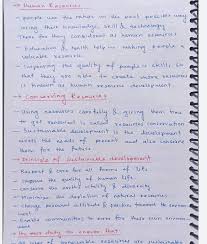 Human Resources
→ People use the other in the best possible way
using their knowledge, skill & technology
There for they considered as human resources
→ Education & health help in making people a
valuable resource.
→ Improving the quality of people's skills so
that they are able to create more resources
is known as human resource development.
→ Conserving Resources
→ Using resources carefully & giving them time
to get renewed is called resource conservation
→ Sustainable development is the development
meets the needs of present and also conserve
them for the future
→ Principle of sustainable development
→ Respect & care for all forms of life
→ improve the quality of human life
→ Conserve the earth's vitality & diversity
→ Minimise the depletion of natural resources
→ change personal attitude & practice toward the environ
ment.
→ Enable communities to care for their own environ
ment
→ We must study to ensure that
of sustainable resources are sustainable